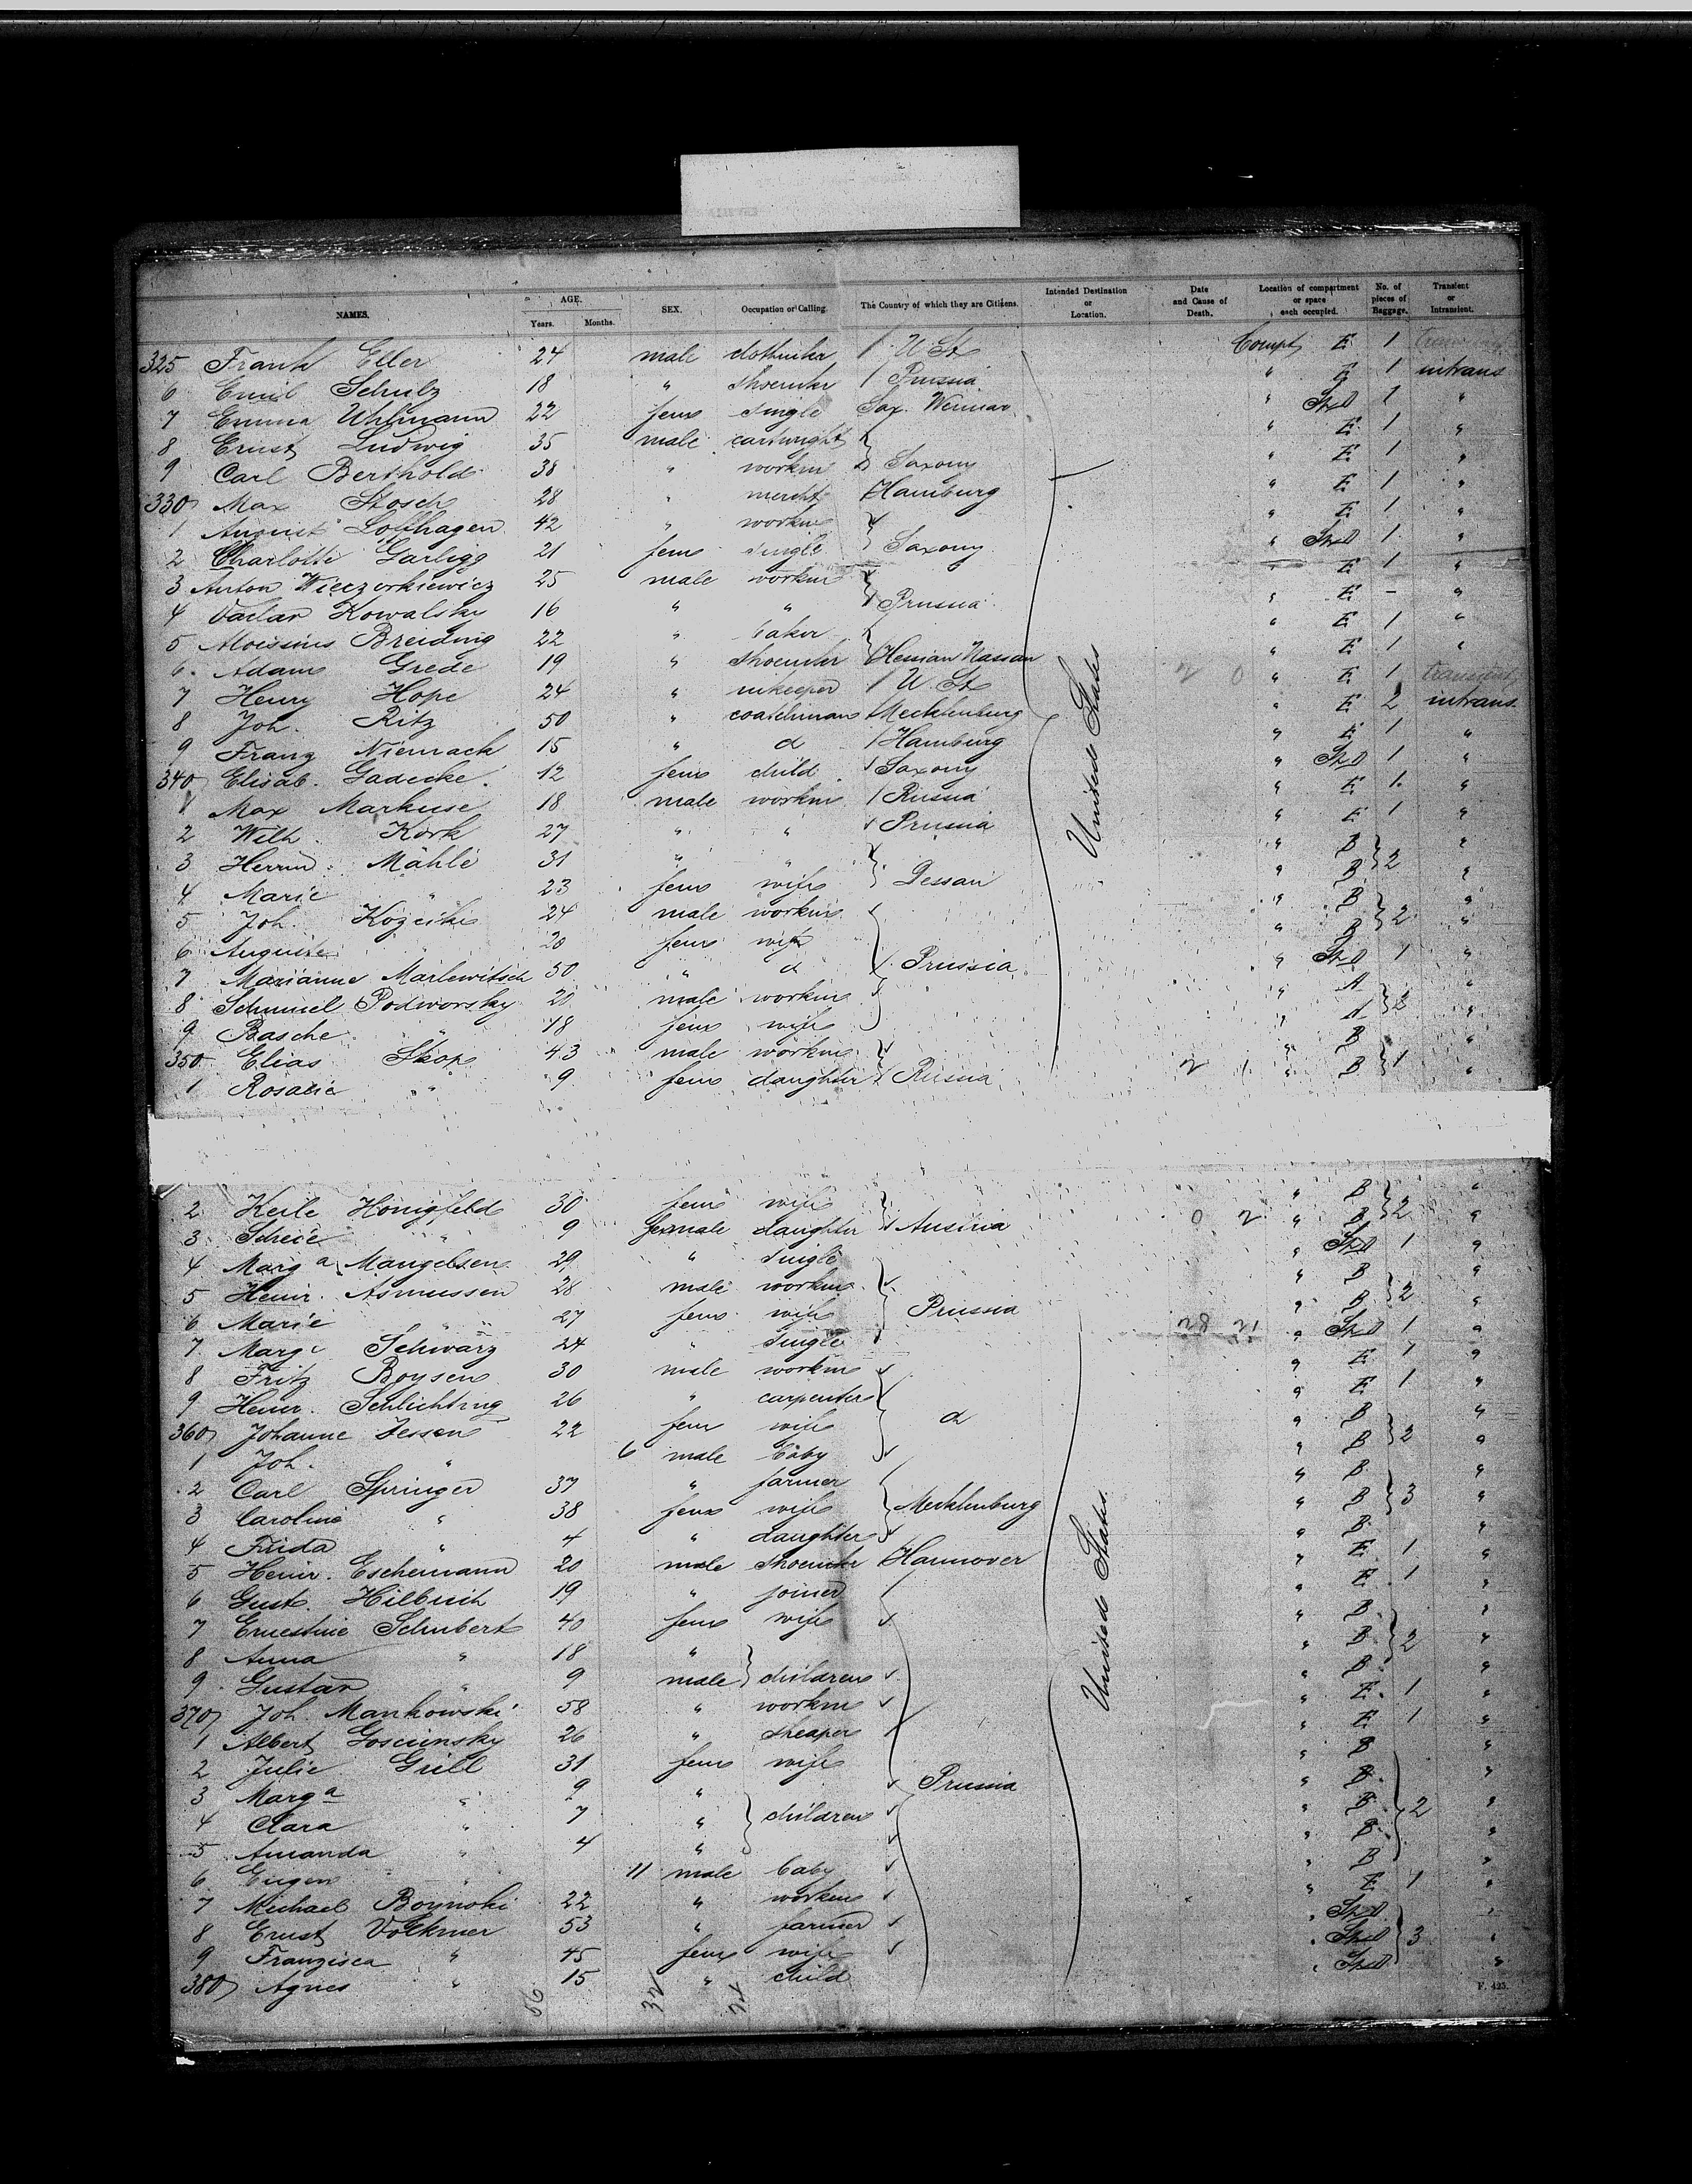 NAMES. AGE. Years. Months. SEX. Occupation or Calling. The Country of which they are Citizens. Intended Destination or Location. Date and Cause of Death. Location of compartment or space each occupied. No. of pieces of Baggage. Transient or Intransient.
325 Frank Eller 24 male clothmker U. St Compt E 1
6 Emil Schulz 18 " shoemker Prussia " E 1 intrans
7 Emma Uhlmann 22 fem single Sax. Weimar " StD 1 "
8 Ernst Ludwig 35 male cartwright " E 1 "
9 Carl Berthold 38 " workm Saxony " E 1 "
330 Max Stosch 28 " mercht Hamburg " E 1 "
1 August Lolfhagen 42 " workm " E 1 "
2 Charlotte Garligg 21 fem single Saxony " StD 1 "
3 Anton Wieczorkiewicz 25 male workm " E 1 "
4 Vaclav Kowalsky 16 " " Prussia " E - "
5 Aloissius Breiding 22 " baker " E 1 "
6 Adam Grede 19 " shoemker Hessian Nassau " E 1 "
7 Henry Hope 24 " inkeeper U. St 2 0 " E 1 transient
8 Joh. Ritz 50 " coatchman Mecklenburg " E 2 intrans
9 Franz Niemack 15 " d Hamburg " E 1 "
340 Elisab. Gadecke 12 fem child Saxony " StD 1 "
1 Max Markuse 18 male workm Russia " E 1 "
2 Wilh. Kork 27 " " Prussia " E 1 "
3 Herrm. Mähle 31 " " " B 2 "
4 Marie " 23 fem wife Dessau " B "
5 Joh. Kozcike 24 male workm " B 2 "
6 Auguste " 20 fem wife " B "
7 Marianne Marlewitsch 50 " d Prussia " StD 1 "
8 Schmuel Podworsky 20 male workm " A 2 "
9 Basche " 18 fem wife " A "
350 Elias Skop 43 male workm " B 1 "
1 Rosalie " 9 fem daughter Russia 2 1 " B "
United States
2 Keile Honigfeld 30 fem wife " B 2 "
3 Scheie " 9 female daughter Austria 0 2 " B "
4 Marga Mangelsen 29 " single " StD 1 "
5 Heinr. Asmussen 28 male workm " B 2 "
6 Marie " 27 fem wife Prussia " B "
7 Marge Schwarz 24 " single 28 21 " StD 1 "
8 Fritz Boysen 30 male workm " E 1 "
9 Heinr. Schlichting 26 " carpenter " E 1 "
360 Johanne Jessen 22 fem wife d " B 2 "
1 Joh. " 6 male baby " B "
2 Carl Springer 37 " farmer " B 3 "
3 Caroline " 38 fem wife Mecklenburg " B "
4 Frida " 4 " daughter " B "
5 Heinr. Eschemann 20 male shoemker Hannover " E 1 "
6 Gust. Hilbrich 19 " joiner " E 1 "
7 Ernestine Schubert 40 fem wife " B 2 "
8 Anna " 18 " children " B "
9 Gustav " 9 male " B "
370 Joh. Mankowski 58 " workm " E 1 "
1 Albert Gosciensky 26 " sheaper " E 1 "
2 Julie Grill 31 fem wife " B 2 "
3 Marga " 9 " children Prussia " B "
4 Clara " 7 " " B "
5 Amanda " 4 " " B "
6 Eugen " 11 male baby " B "
7 Michael 22 " workm " E 1 "
8 Ernst Volkmer 53 " farmer " StD 3 "
9 Franzisca " 45 fem wife " StD "
380 Agnes " 15 " child " StD "
United States.
56 32 24
F. 425.